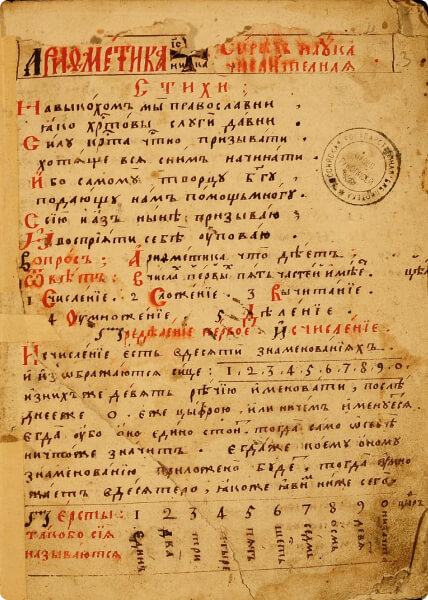 Арифметика
Сирѣчь наука числителная
Стихи:
Навыкохомъ мы православни,
ꙗко хрⷭ҇товы слуги давни.
Силу крⷭ҇та чтⷭ҇но призывати
хотѧще всѧ симъ начинати.
Ибо самому творцу бг҃у,
подающу намъ помощь многу.
Сїю и азъ нынѣ призываю
И воспрїѧти себѣ уповаю.
Вопросъ: Арифметика что дѣетъ:
Ѿвѣтъ: въ числѣ первыѧ пѧть частей имѣеⷮ.
1 Счисленїе. 2 Сложенїе. 3 Вычитанїе.
4 Оумноженїе. 5 Дѣленїе.
Предѣленїе первое. Исчисленїе.
Исчисленїе есть в десѧти знаменованїѧхъ
и изѡбражаютсѧ сице: 1.2.3.4.5.6.7.8.9.0.
из нихъ же девѧть рѣчїю именовати, послѣ
днее же 0. еже цыфрою, или ничемъ именуетсѧ
егда оубо оно едино стоиⷮ. тогда само ѡ себѣ
ничтоже значитъ. егда же коему оному
знаменованїю приложено будеⷮ, тогда оумно
жаетъ в десѧтеро, ꙗкоже ниже сего.
Персты: 1 2 3 4 5 6 7 8 9 0
тако бо сїѧ
называютсѧ
единъ два три пѧть шесть седмь осмь девѧ